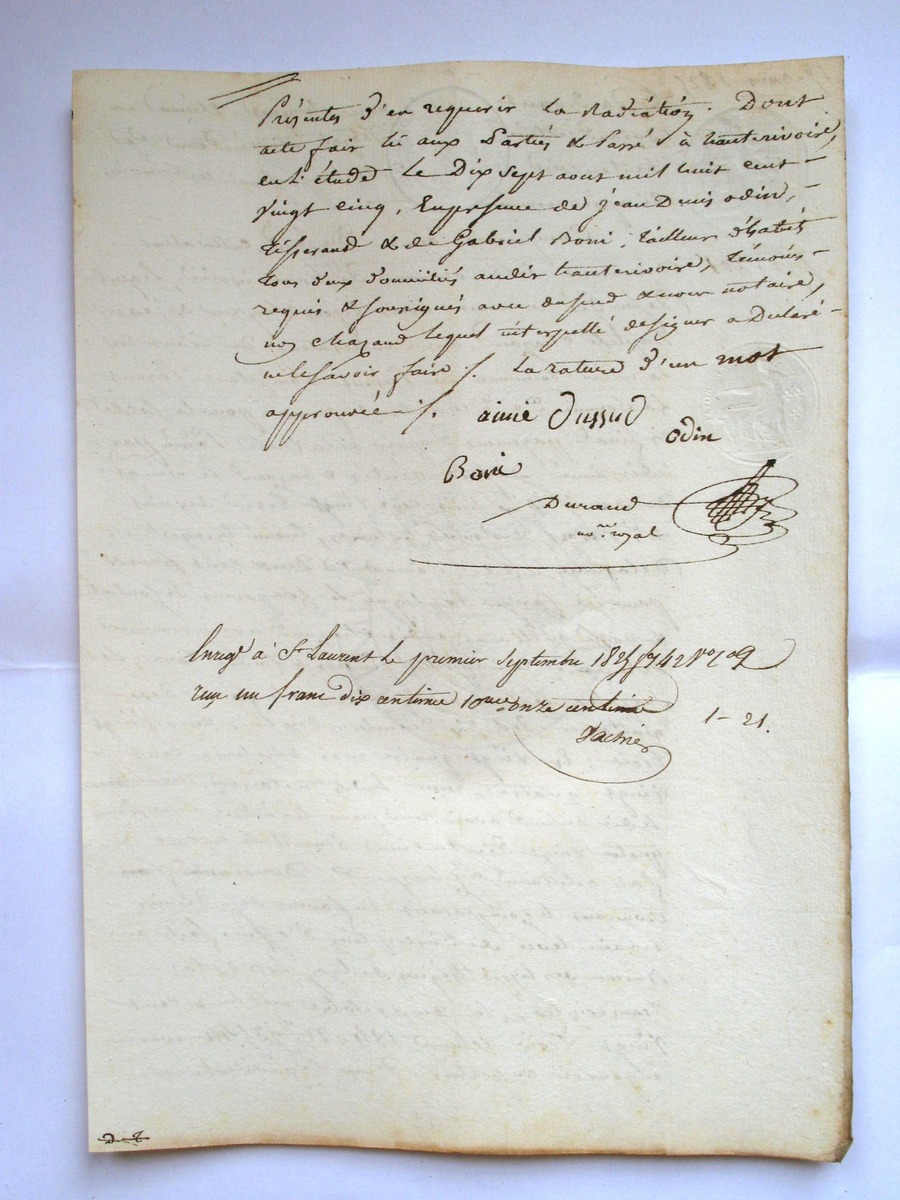 Présentes d'en requerir la Radiation. Dont
acte fait lu aux Parties & Passé à hauterivoire,
en l'étude Le Dix sept aout mil huit cent
vingt cinq, En présence de jean Denis odin,
tisserand & de Gabriel Boni, tailleur d'habits
tous deux domiciliés audit hauterivoire, témoins
requis & soussignés avec dussud & nous notaire,
non chazaud lequel interpellé de signer a Déclaré
ne le savoir faire ./. La rature d'un mot
approuvée ./.
aimé Dussud
odin
Boni
Durand
no.re royal
Enregé à St Laurent Le premier Septembre 1825 fo 142 Vo Co 9
reçu un franc dix centimes 10me onze centimes
1 - 21.